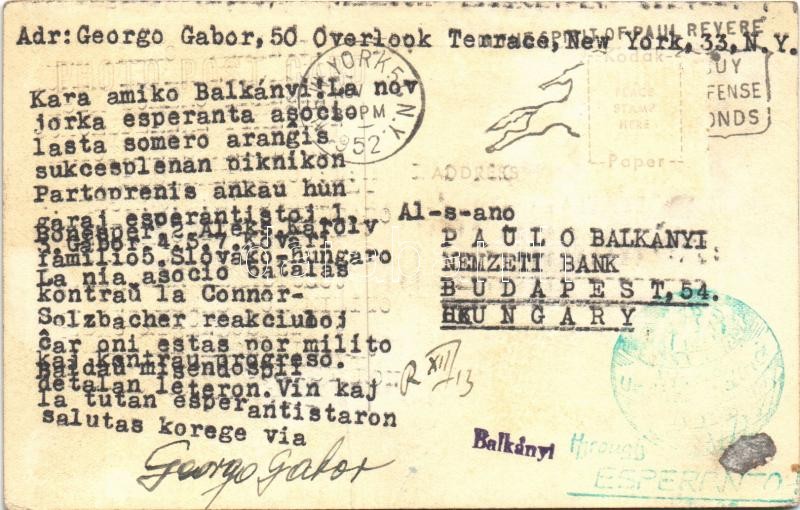 Adr: Georgo Gabor, 50 Overlook Terrace, New York, 33, N.Y.
SPIRIT OF PAUL REVERE
YORK 5 N.Y.
PM
1952
BUY
DEFENSE
BONDS
Kodak
PLACE
STAMP
HERE
Paper
ADDRESS
Kara amiko Balkányi! La nov
jorka esperanta asocio
lasta somero arangis
sukcesplenan piknikon
Partoprenis ankau hun
garaj esperantistoj 1.
Bonesper 2. Aleks. Karoly
3. Gabor. 4.5.7.
familio 5. Slovako-hungaro
La nia asocio batalas
kontraŭ la Connor-
Solzbacher reakciuloj
ĉar oni estas por milito
kaj kontrau progreso.
Baldau mi sendos
detalan leteron. Vin kaj
la tutan esperantistaron
salutas korege via
Georgo Gabor
Al-s-ano
PAULO BALKÁNYI
NEMZETI BANK
BUDAPEST, 54.
HUNGARY
R XII/13
Balkányi
through
ESPERANTO